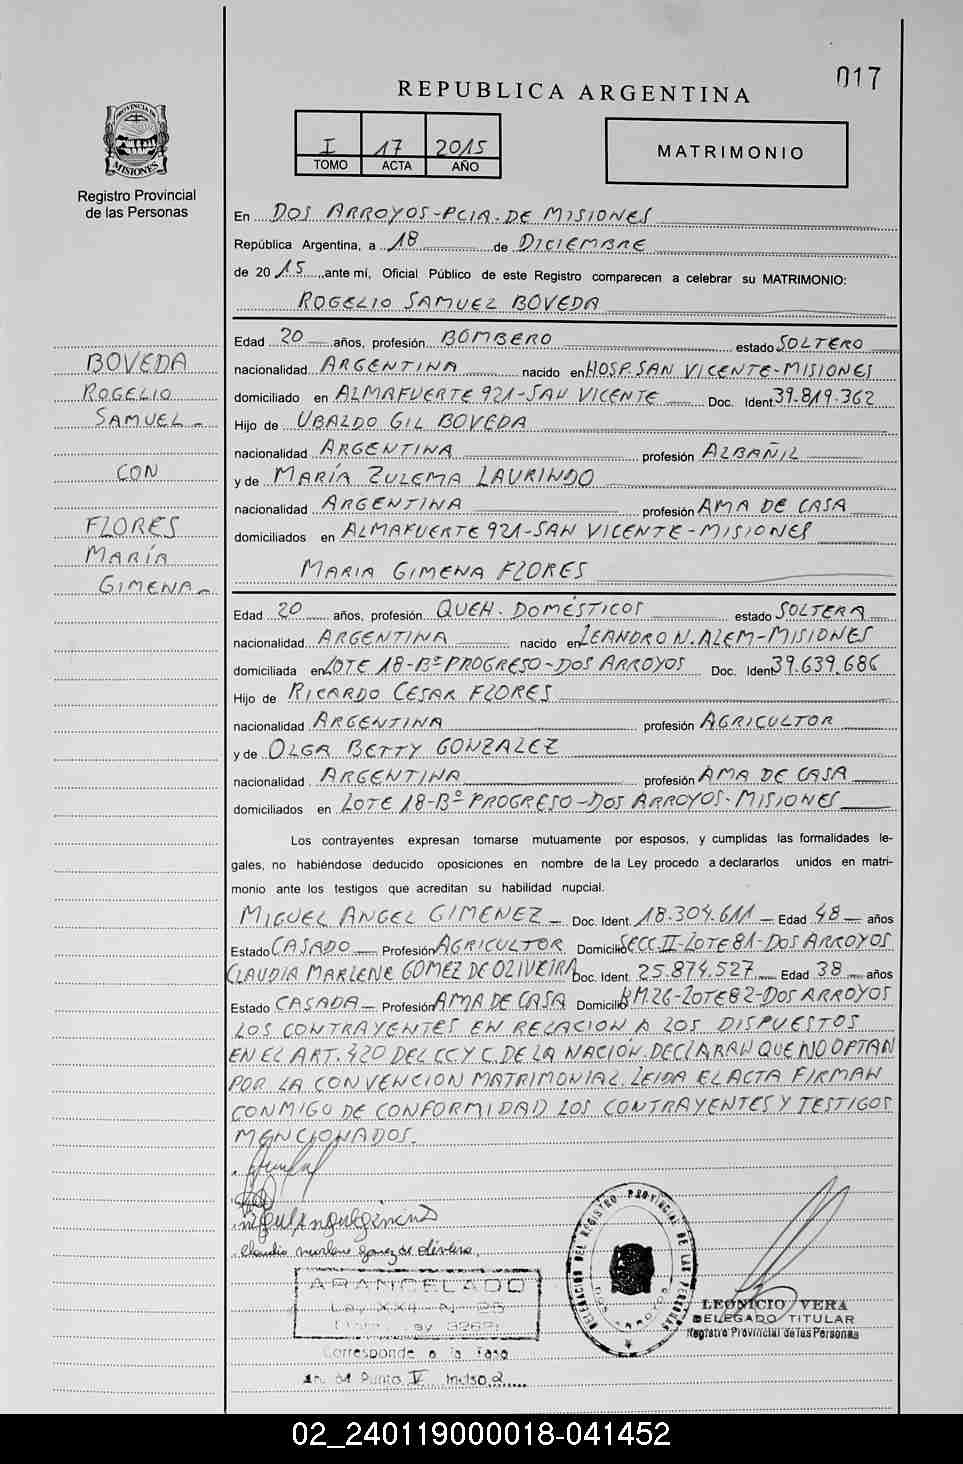 017
REPUBLICA ARGENTINA
PROVINCIA DE
MISIONES
Registro Provincial
de las Personas
I 17 2015
TOMO ACTA AÑO
MATRIMONIO
En DOS ARROYOS-PCIA. DE MISIONES
República Argentina, a 18 de DICIEMBRE
de 20 15 ante mí, Oficial Público de este Registro comparecen a celebrar su MATRIMONIO:
ROGELIO SAMUEL BOVEDA
BOVEDA
ROGELIO
SAMUEL
CON
FLORES
MARÍA
GIMENA
Edad 20 años, profesión BOMBERO estado SOLTERO
nacionalidad ARGENTINA nacido en HOSP. SAN VICENTE-MISIONES
domiciliado en ALMAFUERTE 921-SAN VICENTE Doc. Ident. 39.819.362
Hijo de UBALDO GIL BOVEDA
nacionalidad ARGENTINA profesión ALBAÑIL
y de MARÍA ZULEMA LAURINDO
nacionalidad ARGENTINA profesión AMA DE CASA
domiciliados en ALMAFUERTE 921-SAN VICENTE-MISIONES
MARIA GIMENA FLORES
Edad 20 años, profesión QUEH. DOMÉSTICOS estado SOLTERA
nacionalidad ARGENTINA nacido en LEANDRO N. ALEM-MISIONES
domiciliada en LOTE 18-Bº PROGRESO-DOS ARROYOS Doc. Ident. 39.639.686
Hijo de RICARDO CESAR FLORES
nacionalidad ARGENTINA profesión AGRICULTOR
y de OLGA BETTY GONZALEZ
nacionalidad ARGENTINA profesión AMA DE CASA
domiciliados en LOTE 18-Bº PROGRESO-DOS ARROYOS-MISIONES
Los contrayentes expresan tomarse mutuamente por esposos, y cumplidas las formalidades le-
gales, no habiéndose deducido oposiciones en nombre de la Ley procedo a declararlos unidos en matri-
monio ante los testigos que acreditan su habilidad nupcial.
MIGUEL ANGEL GIMENEZ Doc. Ident. 18.304.611 Edad 48 años
Estado CASADO Profesión AGRICULTOR Domicilio SECC.II-LOTE 81-DOS ARROYOS
CLAUDIA MARLENE GOMEZ DE OLIVEIRA Doc. Ident. 25.874.527 Edad 38 años
Estado CASADA Profesión AMA DE CASA Domicilio KM.26-LOTE 82-DOS ARROYOS
LOS CONTRAYENTES EN RELACION A LOS DISPUESTOS
EN EL ART. 420 DEL CC.Y C. DE LA NACIÓN, DECLARAN QUE NO OPTAN
POR LA CONVENCION MATRIMONIAL. LEIDA EL ACTA FIRMAN
CONMIGO DE CONFORMIDAD LOS CONTRAYENTES Y TESTIGOS
MENCIONADOS.
ARANCELADO
Ley XXII - N°
Corresponde a la Tasa
Punto V Inciso 2
DELEGACION DEL REGISTRO PROVINCIAL DE LAS PERSONAS
DOS ARROYOS
LEONICIO VERA
DELEGADO TITULAR
Registro Provincial de las Personas
02_240119000018-041452